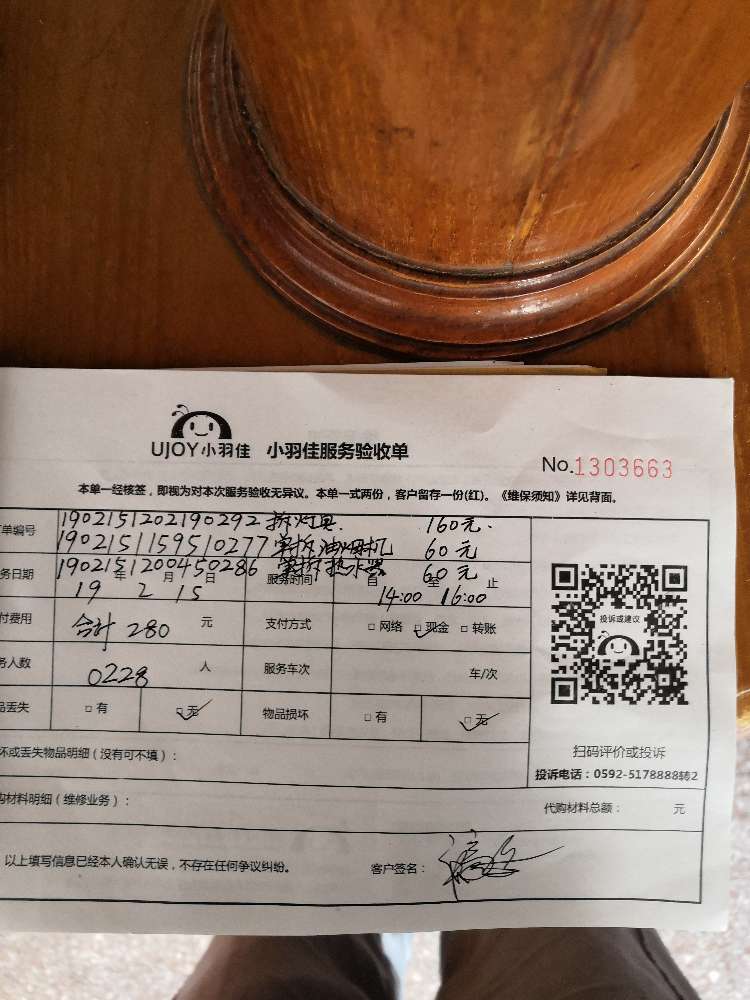 UJOY小羽佳 小羽佳服务验收单
No.1303663
本单一经核签，即视为对本次服务验收无异议。本单一式两份，客户留存一份(红)。《维保须知》详见背面。
单编号 1902151202190292 拆灯具 160元
1902151159510277 单拆油烟机 60元
1902151200450286 单拆热水器 60元
务日期 19年2月15日 服务时间 自14:00至16:00止
付费用 合计280元 支付方式 □网络 □现金 □转账
务人数 0228人 服务车次 车/次
品丢失 □有 □无 物品损坏 □有 □无
投诉或建议
扫码评价或投诉
投诉电话：0592-5178888转2
坏或丢失物品明细（没有可不填）：
购材料明细（维修业务）： 代购材料总额： 元
以上填写信息已经本人确认无误，不存在任何争议纠纷。 客户签名：